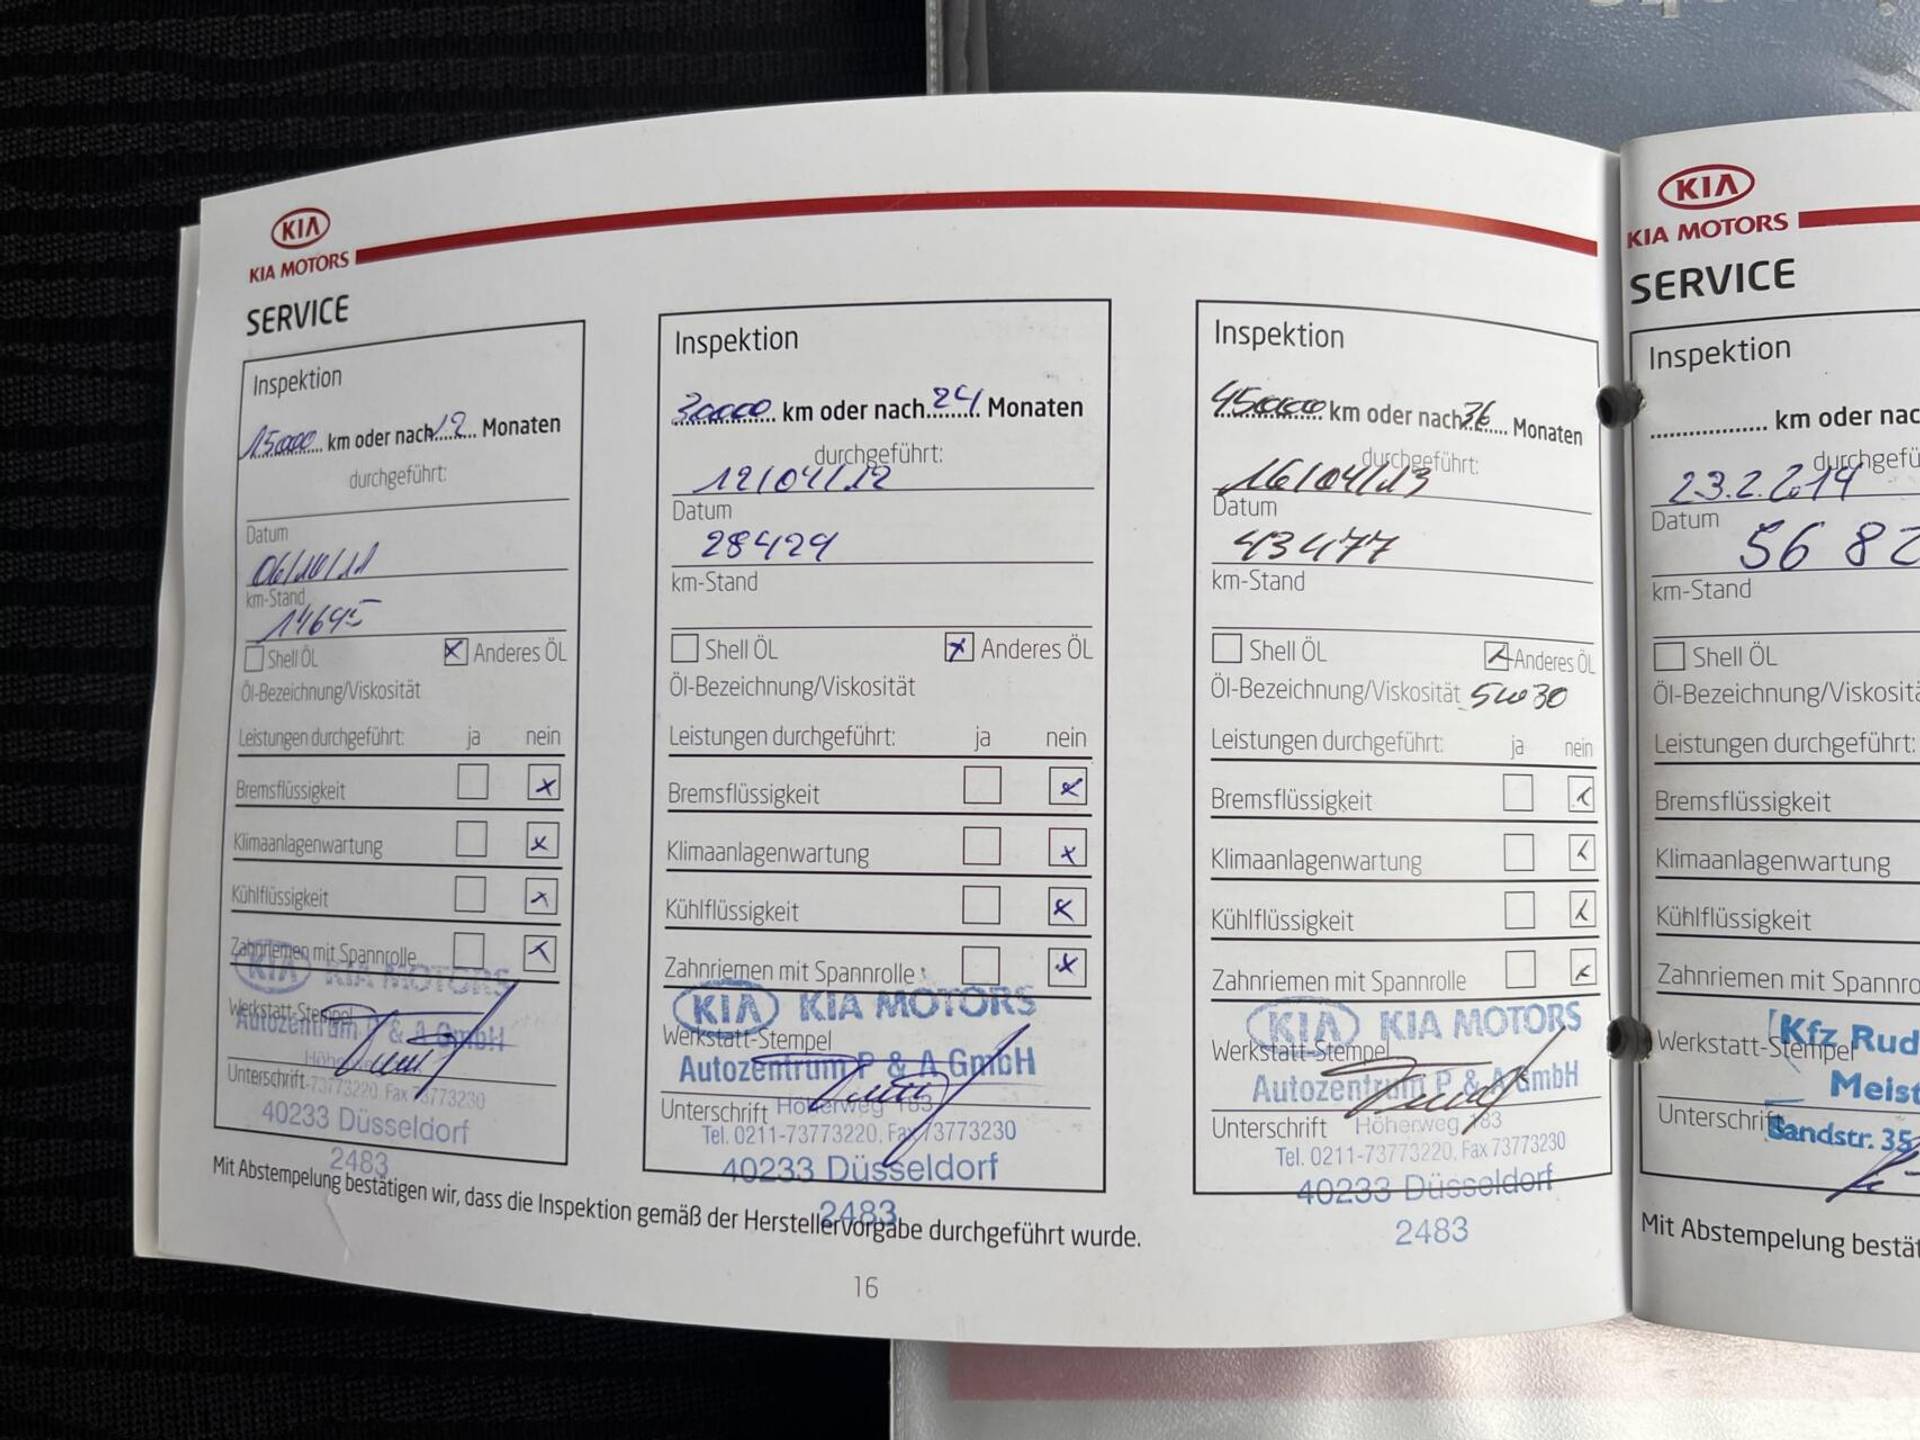 KIA
KIA MOTORS
SERVICE
Inspektion
15000 km oder nach 12 Monaten
durchgeführt:
Datum
06/10/11
km-Stand
14645
Shell ÖL
Anderes ÖL
Öl-Bezeichnung/Viskosität
Leistungen durchgeführt: ja nein
Bremsflüssigkeit
Klimaanlagenwartung
Kühlflüssigkeit
Zahnriemen mit Spannrolle
KIA KIA MOTORS
Werkstatt-Stempel
Autozentrum P & A GmbH
Unterschrift
73773220 Fax 73773230
40233 Düsseldorf
2483
Inspektion
30000 km oder nach 24 Monaten
durchgeführt:
12/04/12
Datum
28429
km-Stand
Shell ÖL
Anderes ÖL
Öl-Bezeichnung/Viskosität
Leistungen durchgeführt: ja nein
Bremsflüssigkeit
Klimaanlagenwartung
Kühlflüssigkeit
Zahnriemen mit Spannrolle
KIA KIA MOTORS
Werkstatt-Stempel
Autozentrum P & A GmbH
Unterschrift
Höherweg 183
Tel. 0211-73773220, Fax 73773230
40233 Düsseldorf
2483
Inspektion
45000 km oder nach 36 Monaten
durchgeführt:
16/04/13
Datum
43477
km-Stand
Shell ÖL
Anderes ÖL
Öl-Bezeichnung/Viskosität 5W30
Leistungen durchgeführt: ja nein
Bremsflüssigkeit
Klimaanlagenwartung
Kühlflüssigkeit
Zahnriemen mit Spannrolle
KIA KIA MOTORS
Werkstatt-Stempel
Autozentrum P & A GmbH
Unterschrift
Höherweg 183
Tel. 0211-73773220, Fax 73773230
40233 Düsseldorf
2483
Mit Abstempelung bestätigen wir, dass die Inspektion gemäß der Herstellervorgabe durchgeführt wurde.
16
KIA
KIA MOTORS
SERVICE
Inspektion
km oder nac
durchgefü
23.2.2014
Datum
56 82
km-Stand
Shell ÖL
Öl-Bezeichnung/Viskositä
Leistungen durchgeführt:
Bremsflüssigkeit
Klimaanlagenwartung
Kühlflüssigkeit
Zahnriemen mit Spannro
Werkstatt-Stempel
Kfz Rud
Meist
Unterschrift
Sandstr. 35
Mit Abstempelung bestät